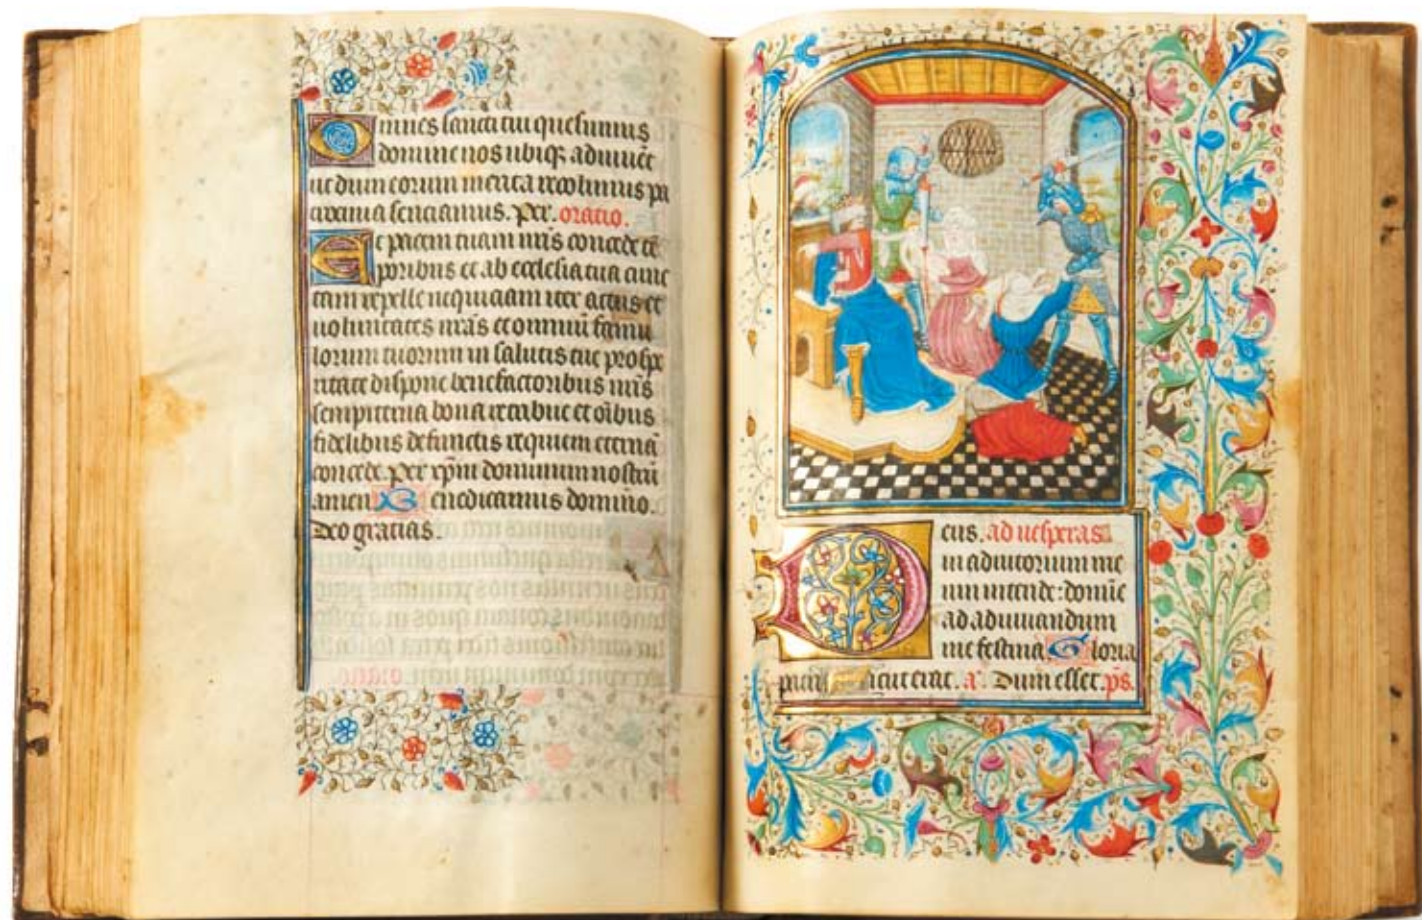 Omnes sancti tui quesumus
domine nos ubiq̢ adiuuēt
ut dum eorum merita recolimus pa
trocinia senciamus. Per. oratio.
Et pacem tuam nr̄is concede tē
poribus et ab ecclesia tua cunc
tam repelle nequiciam iter actus et
uoluntates nr̄as et omniū famu
lorum tuorum in salutis tue prospe
ritate dispone benefactoribus nr̄is
sempiterna bona retribue et oībus
fidelibus defunctis requiem eternā
concede. Per xp̄m dominum nostrū
amen Benedicamus domino.
Deo gracias.
Deus. ad uesperas
in adiutorium me
um intende: domīe
ad adiuuandum
me festina Gloria
sicut erat. a. Dum esset. ps.